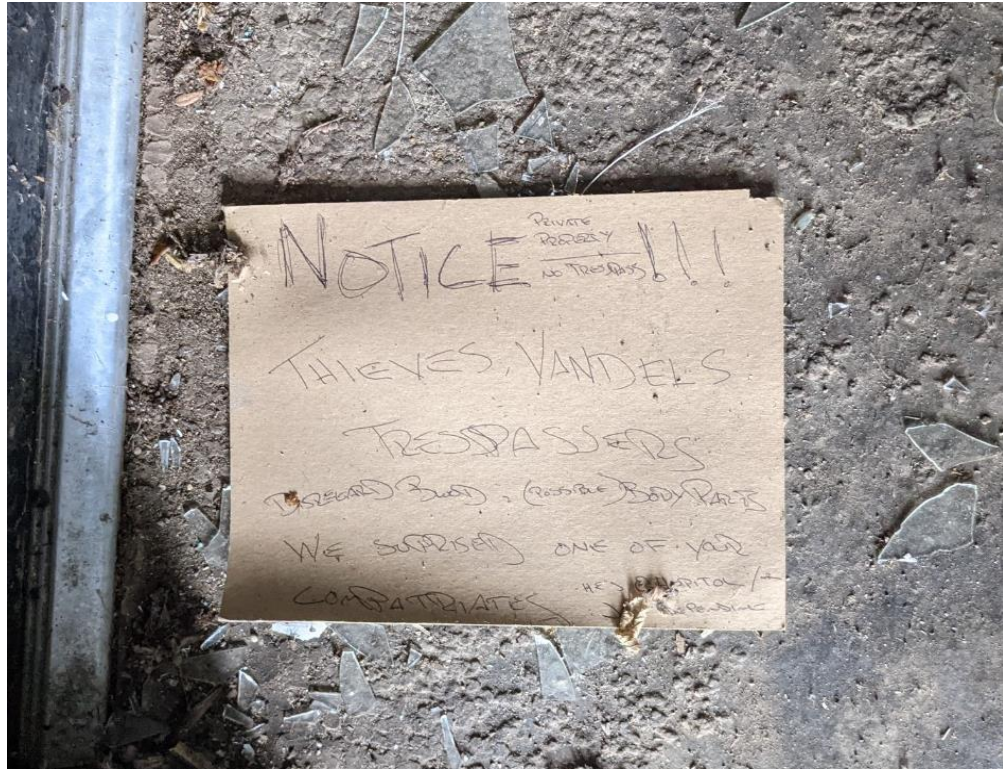 NOTICE!!!
PRIVATE
PROPERTY
NO TRESPASS
THIEVES, VANDELS
TRESSPASSERS
DISREGARD BLOOD, (POSSIBLE) BODY PARTS
WE SURPRISED ONE OF YOUR
COMPATRIATES